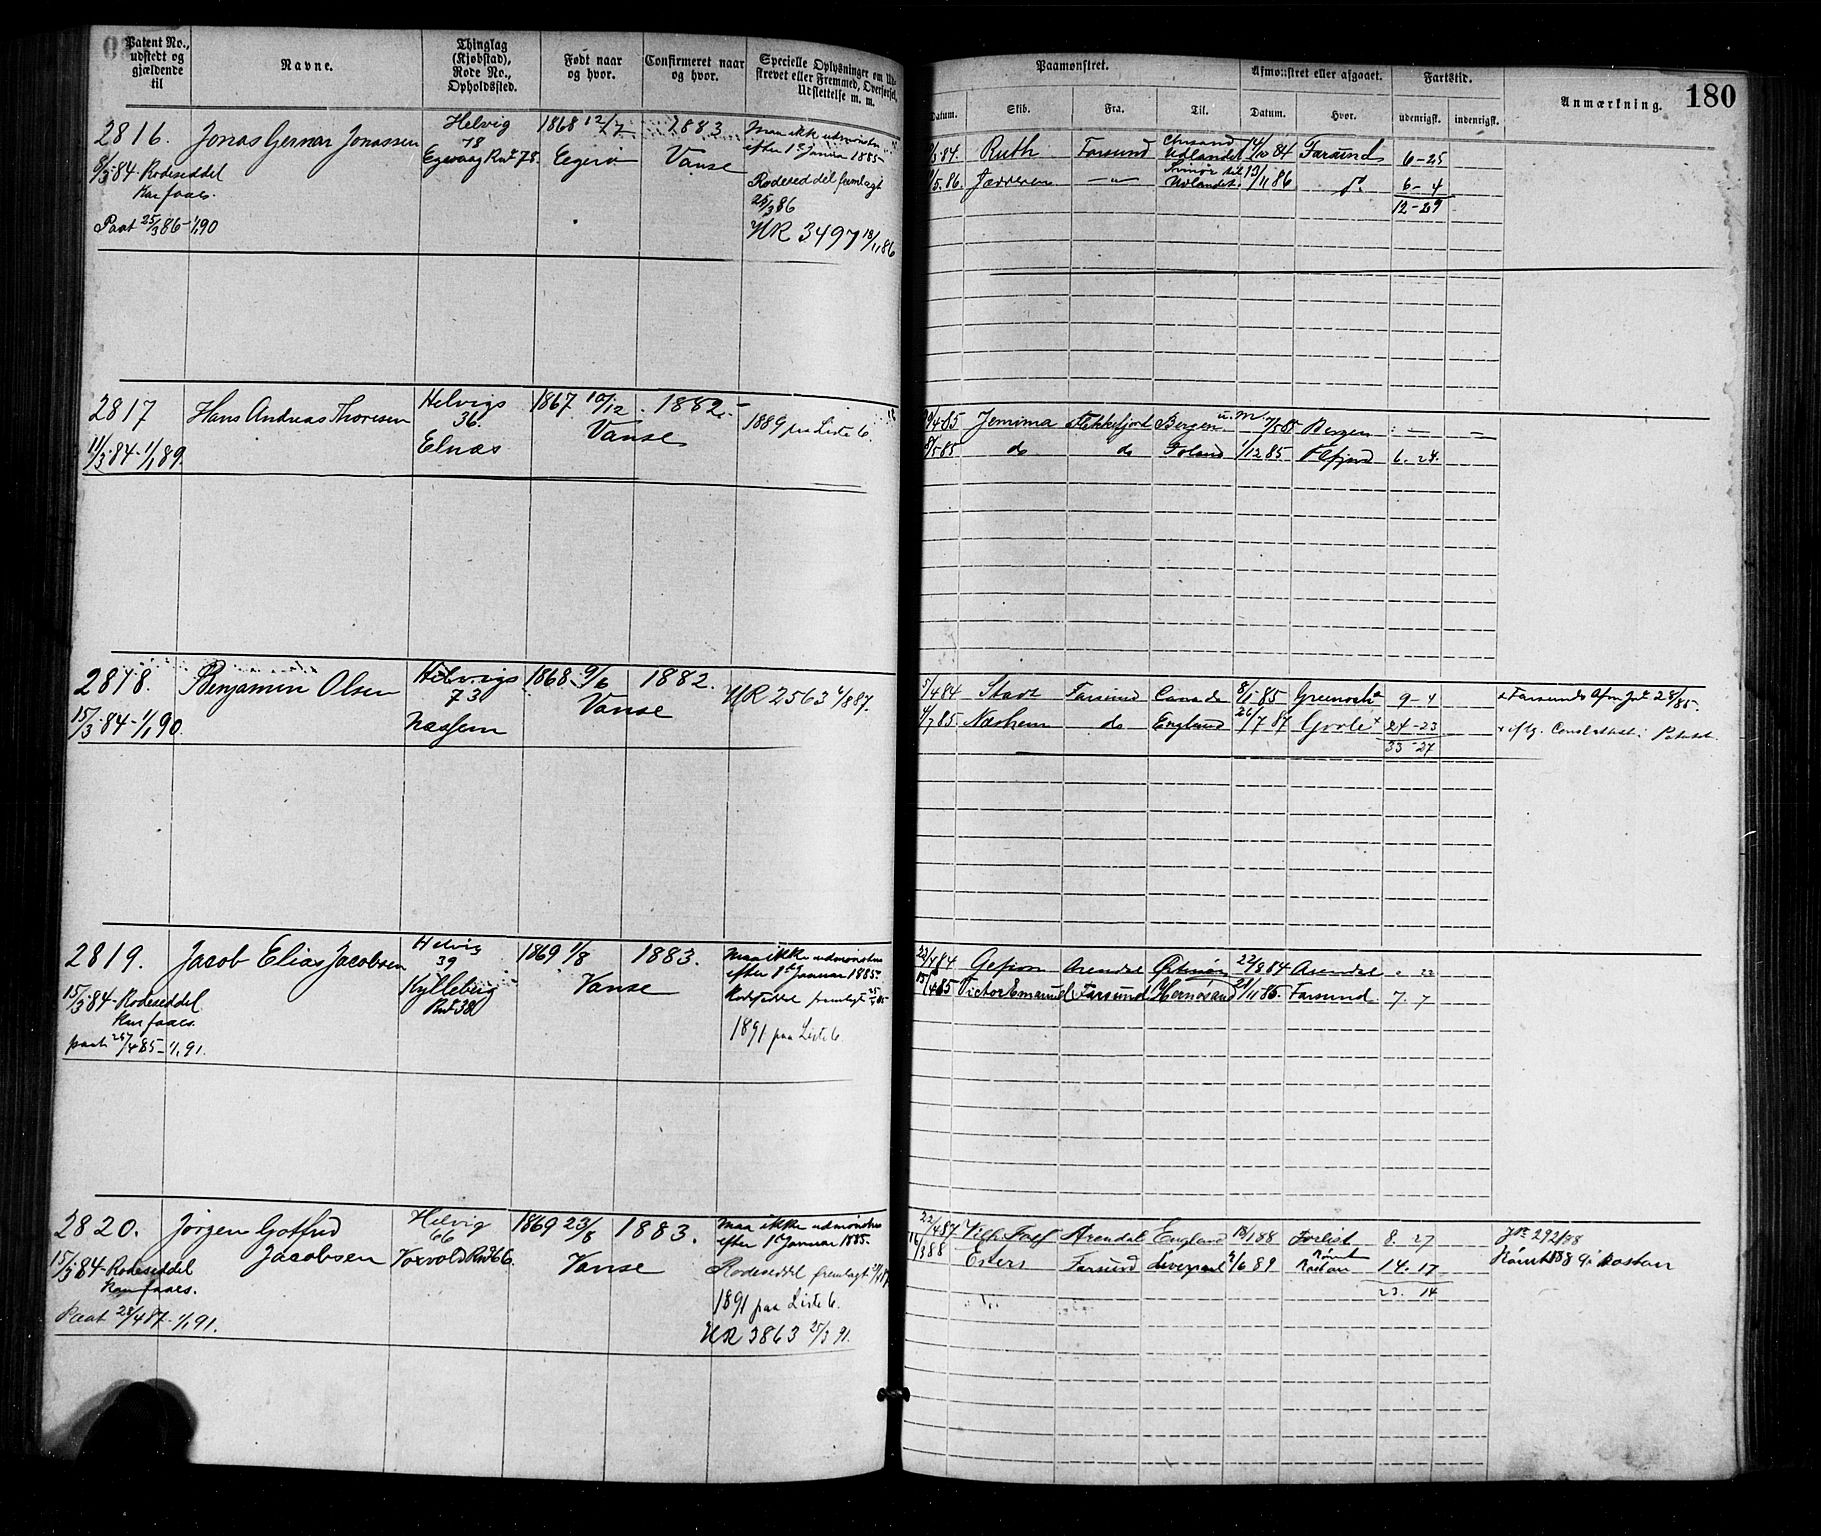 Patent No., udstedt og gjældende til
Navne.
Thinglag (Kjøbstad), Rode No., Opholdssted.
Født naar og hvor.
Confirmeret naar og hvor.
Specielle Oplysninger om Udskrevet eller Fremmed, Overførsel, Udslettelse m. m.
Paamønstret.
Afmønstret eller afgaaet.
Fartstid.
Anmærkning.
180
Datum.
Skib.
Fra.
Til.
Datum.
Hvor.
udenrigsk.
indenrigsk.
2816.
8/3 84 - Rodeseddel
Kun faaes.
Paat 25/3 86 - 1/1 90
Jonas Gernar Jonassen
Helvig
78
Egevaag Rnt 78.
1868 12/7
Egerø
1883
Vanse
Maa ikk udmønstres
efter 1ste Januar 1885
Rodeseddel fremlagt
25/3 86
HR 3497 18/11 86
84. Ruth Farsund Chrsand Udlandet 4/10 84 Farsund 6 - 25
/5. 86. Jædderen — " — Udlandet. 13/11 86 do 6 - 4
12 - 29
2817
11/3 84 - 1/1 89.
Hans Andreas Thoresen
Helvigs
36.
Elnæs
1867 10/12
1882.
Vanse
1889 paa Liste 6.
/4 85 Jemima Flekkefjord Bergen u. m. /5 85 Bergen
8/5 85 do do 1/12 85 6. 24.
2818.
15/3 84 - 1/1 90.
Benjamin Olsen
Helvigs
73
Næssem
1868 9/6
1882.
Vanse
HR 2563 4/8 87.
5/4 84 Stadt Farsund Canada 8/1 85 Greenock 9 - 4
4/7 85. Næshem do England 26/7 87 Goole + 24 - 23
33 - 27
2819.
15/3 84 - Rodeseddel
Kun faaes.
paat 25/4 85 - 1/1 91.
Jacob Elias Jacobsen
Helvig
39
Kylleberg
Rnt 39
1869 1/8
1883.
Vanse
Maa ikke udmønstres
efter 1ste Januar 1885.
Rodeseddel fremlagt 25/4 85
1891 paa Liste 6
22/4 84 Gefion Arendal Østersøen 22/8 84 Arendal " "
15/4 85 Victor Emanuel Farsund Hernøsand 21/11 85. Farsund 7. 7
2820.
15/3 84 - Rodeseddel
Kun faaes.
Paat 28/4 87 - 1/1 91.
Jørgen Gotfred
Jacobsen
Helvig
66
Rnt 66.
1869 23/8
1883.
Vanse
Maa ikke udmønstres
efter 1ste Januar 1885.
Rodeseddel fremlagt
1891 paa Liste 6.
HR 3863 25/3 91.
22/4 87 Arendal England 13/1 88 8. 27
16/3 88 Farsund Liverpool /6 89 Rømt 14. 17
23. 14
292/98
Rømt i Boston